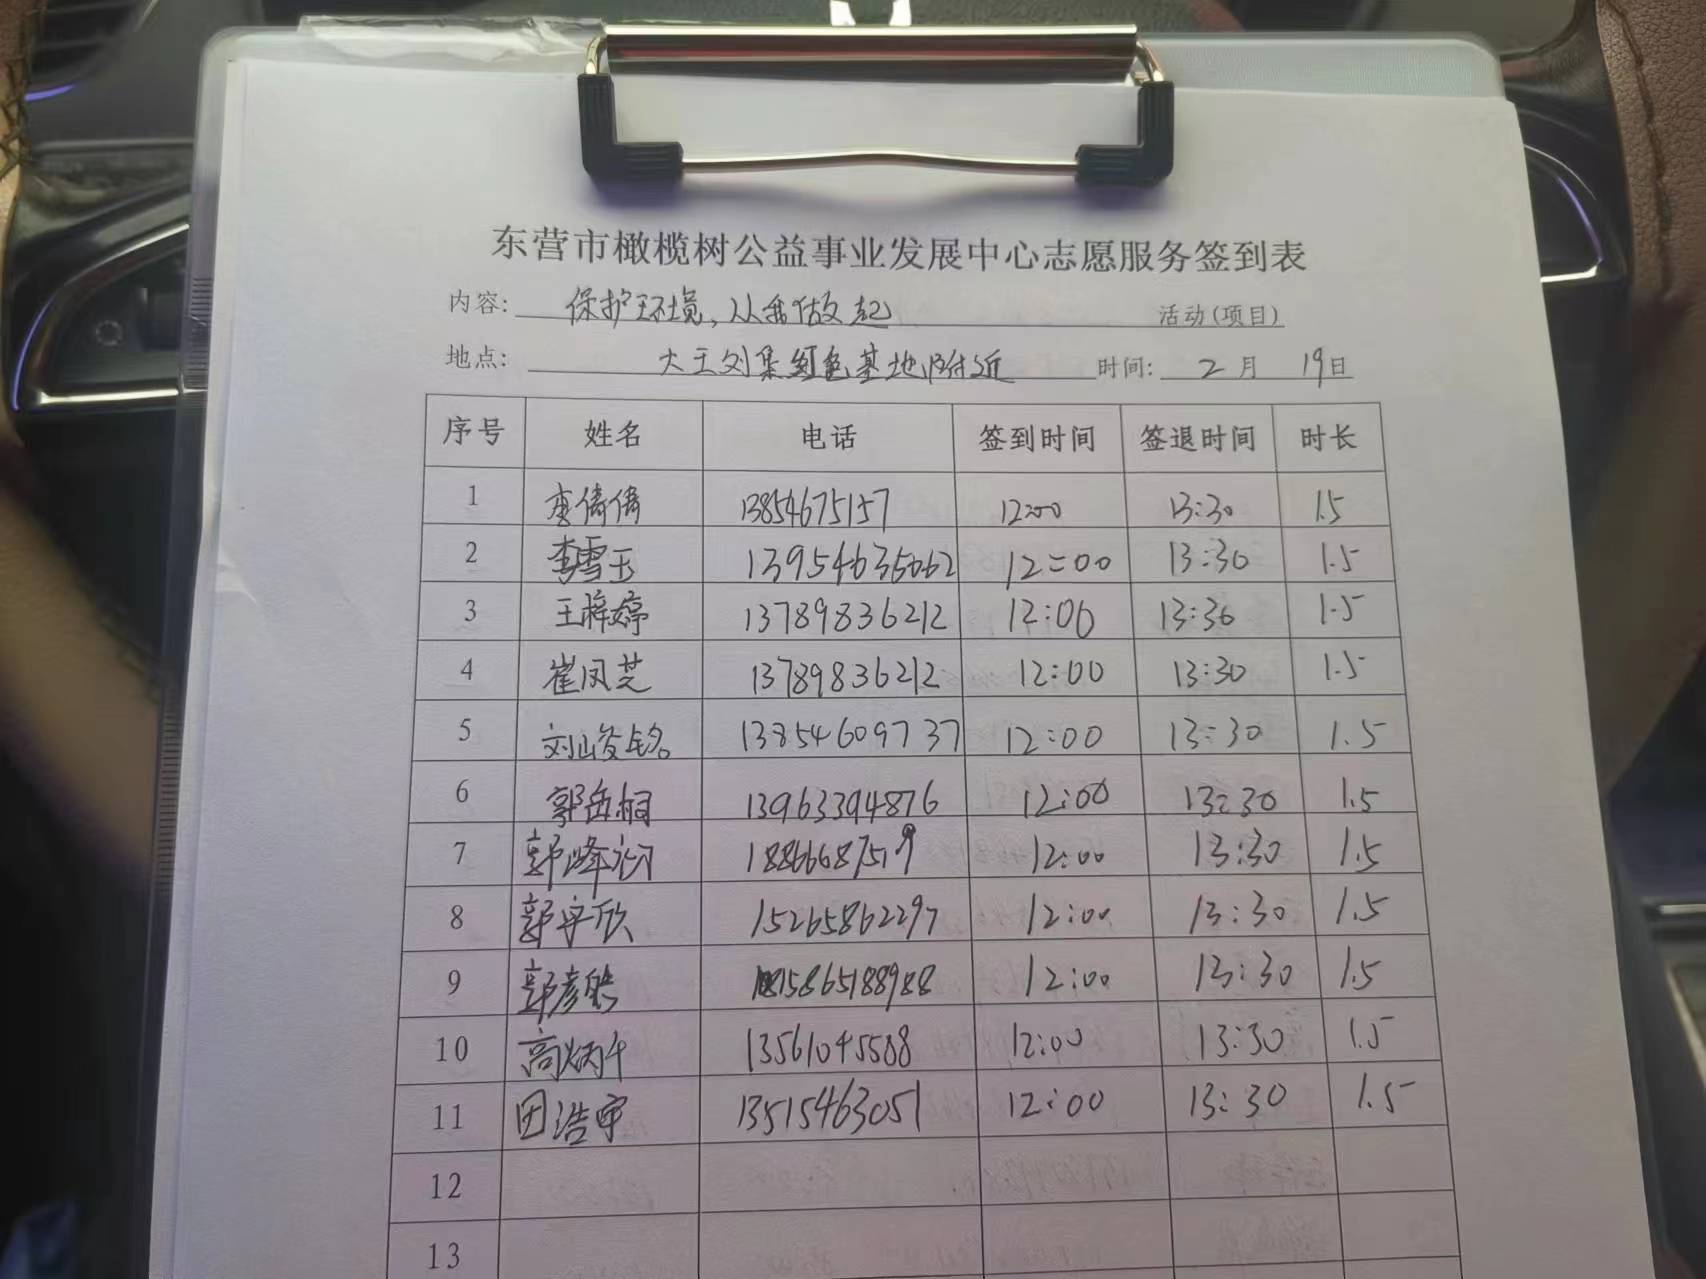 东营市橄榄树公益事业发展中心志愿服务签到表
内容: 保护环境,从我做起 活动(项目)
地点: 大王刘集红色基地附近 时间: 2月 19日
序号 姓名 电话 签到时间 签退时间 时长
1 李倩倩 13854675157 12:00 13:30 1.5
2 李雪玉 13954635662 12:00 13:30 1.5
3 王梓婷 13789836212 12:00 13:30 1.5
4 崔凤芝 13789836212 12:00 13:30 1.5
5 刘峻铭 13854609737 12:00 13:30 1.5
6 郭岳桐 13963394876 12:00 13:30 1.5
7 郭峰 12:00 13:30 1.5
8 郭宇欣 15265862297 12:00 13:30 1.5
9 郭彦 15865188988 12:00 13:30 1.5
10 高炳 13561045588 12:00 13:30 1.5
11 田浩 13515463051 12:00 13:30 1.5
12
13